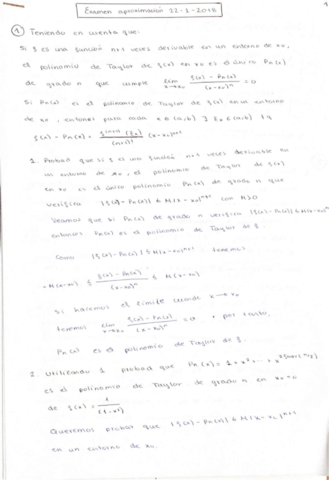 Examen aproximación 22-1-2018
1 Teniendo en cuenta que:
Si f es una función n+1 veces derivable en un entorno de x₀,
el polinomio de Taylor de f(x) en x₀ es el único Pn(x)
de grado n que cumple lim x→x₀ f(x) - Pn(x) / (x-x₀)ⁿ = 0
Si Pn(x) es el polinomio de Taylor de f(x) en un entorno
de x₀, entonces para cada x ∈ (a,b) ∃ ξx ∈ (a,b) tq
f(x) - Pn(x) = fⁿ⁺¹(ξx) / (n+1)! (x-x₀)ⁿ⁺¹
1. Probad que si f es una función n+1 veces derivable en
un entorno de x₀, el polinomio de Taylor de f(x)
en x₀ es el único polinomio Pn(x) de grado n que
verifica |f(x) - Pn(x)| ≤ M|x-x₀|ⁿ⁺¹ con M>0
Veamos que si Pn(x) de grado n verifica |f(x)-Pn(x)| ≤ M|x-x₀|ⁿ⁺¹
entonces Pn(x) es el polinomio de Taylor de f.
Como |f(x)-Pn(x)| ≤ M|x-x₀|ⁿ⁺¹ tenemos
-M(x-x₀) ≤ f(x) - Pn(x) / (x-x₀)ⁿ ≤ M(x-x₀)
Si hacemos el límite cuando x→x₀
tenemos lim x→x₀ f(x) - Pn(x) / (x-x₀)ⁿ = 0 y por tanto,
Pn(x) es el polinomio de Taylor de f.
2. Utilizando 1 probad que Pn(x) = 1 + x² + ... + x
es el polinomio de Taylor de grado n en x₀=0
de f(x) = 1 / (1-x²)
Queremos probar que |f(x) - Pn(x)| ≤ M|x-x₀|ⁿ⁺¹
en un entorno de x₀.